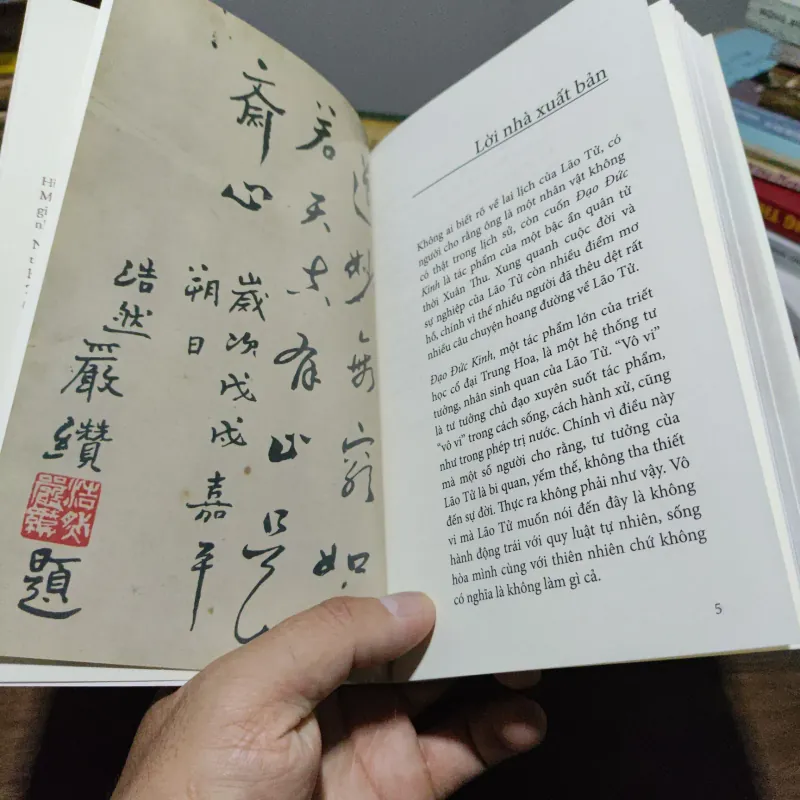 妙 無 窮 如
齋 心
歲次戊戌嘉平
朔日
浩然嚴纘
題
Lời nhà xuất bản
Không ai biết rõ về lai lịch của Lão Tử, có
người cho rằng ông là một nhân vật không
có thật trong lịch sử, còn cuốn Đạo Đức
Kinh là tác phẩm của một bậc ẩn quân tử
thời Xuân Thu. Xung quanh cuộc đời và
sự nghiệp của Lão Tử còn nhiều điểm mơ
hồ, chính vì thế nhiều người đã thêu dệt rất
nhiều câu chuyện hoang đường về Lão Tử.
Đạo Đức Kinh, một tác phẩm lớn của triết
học cổ đại Trung Hoa, là một hệ thống tư
tưởng, nhân sinh quan của Lão Tử. “Vô vi”
là tư tưởng chủ đạo xuyên suốt tác phẩm,
“vô vi” trong cách sống, cách hành xử, cũng
như trong phép trị nước. Chính vì điều này
mà một số người cho rằng, tư tưởng của
Lão Tử là bi quan, yếm thế, không tha thiết
đến sự đời. Thực ra không phải như vậy. Vô
vi mà Lão Tử muốn nói đến đây là không
hành động trái với quy luật tự nhiên, sống
hòa mình cùng với thiên nhiên chứ không
có nghĩa là không làm gì cả.
5